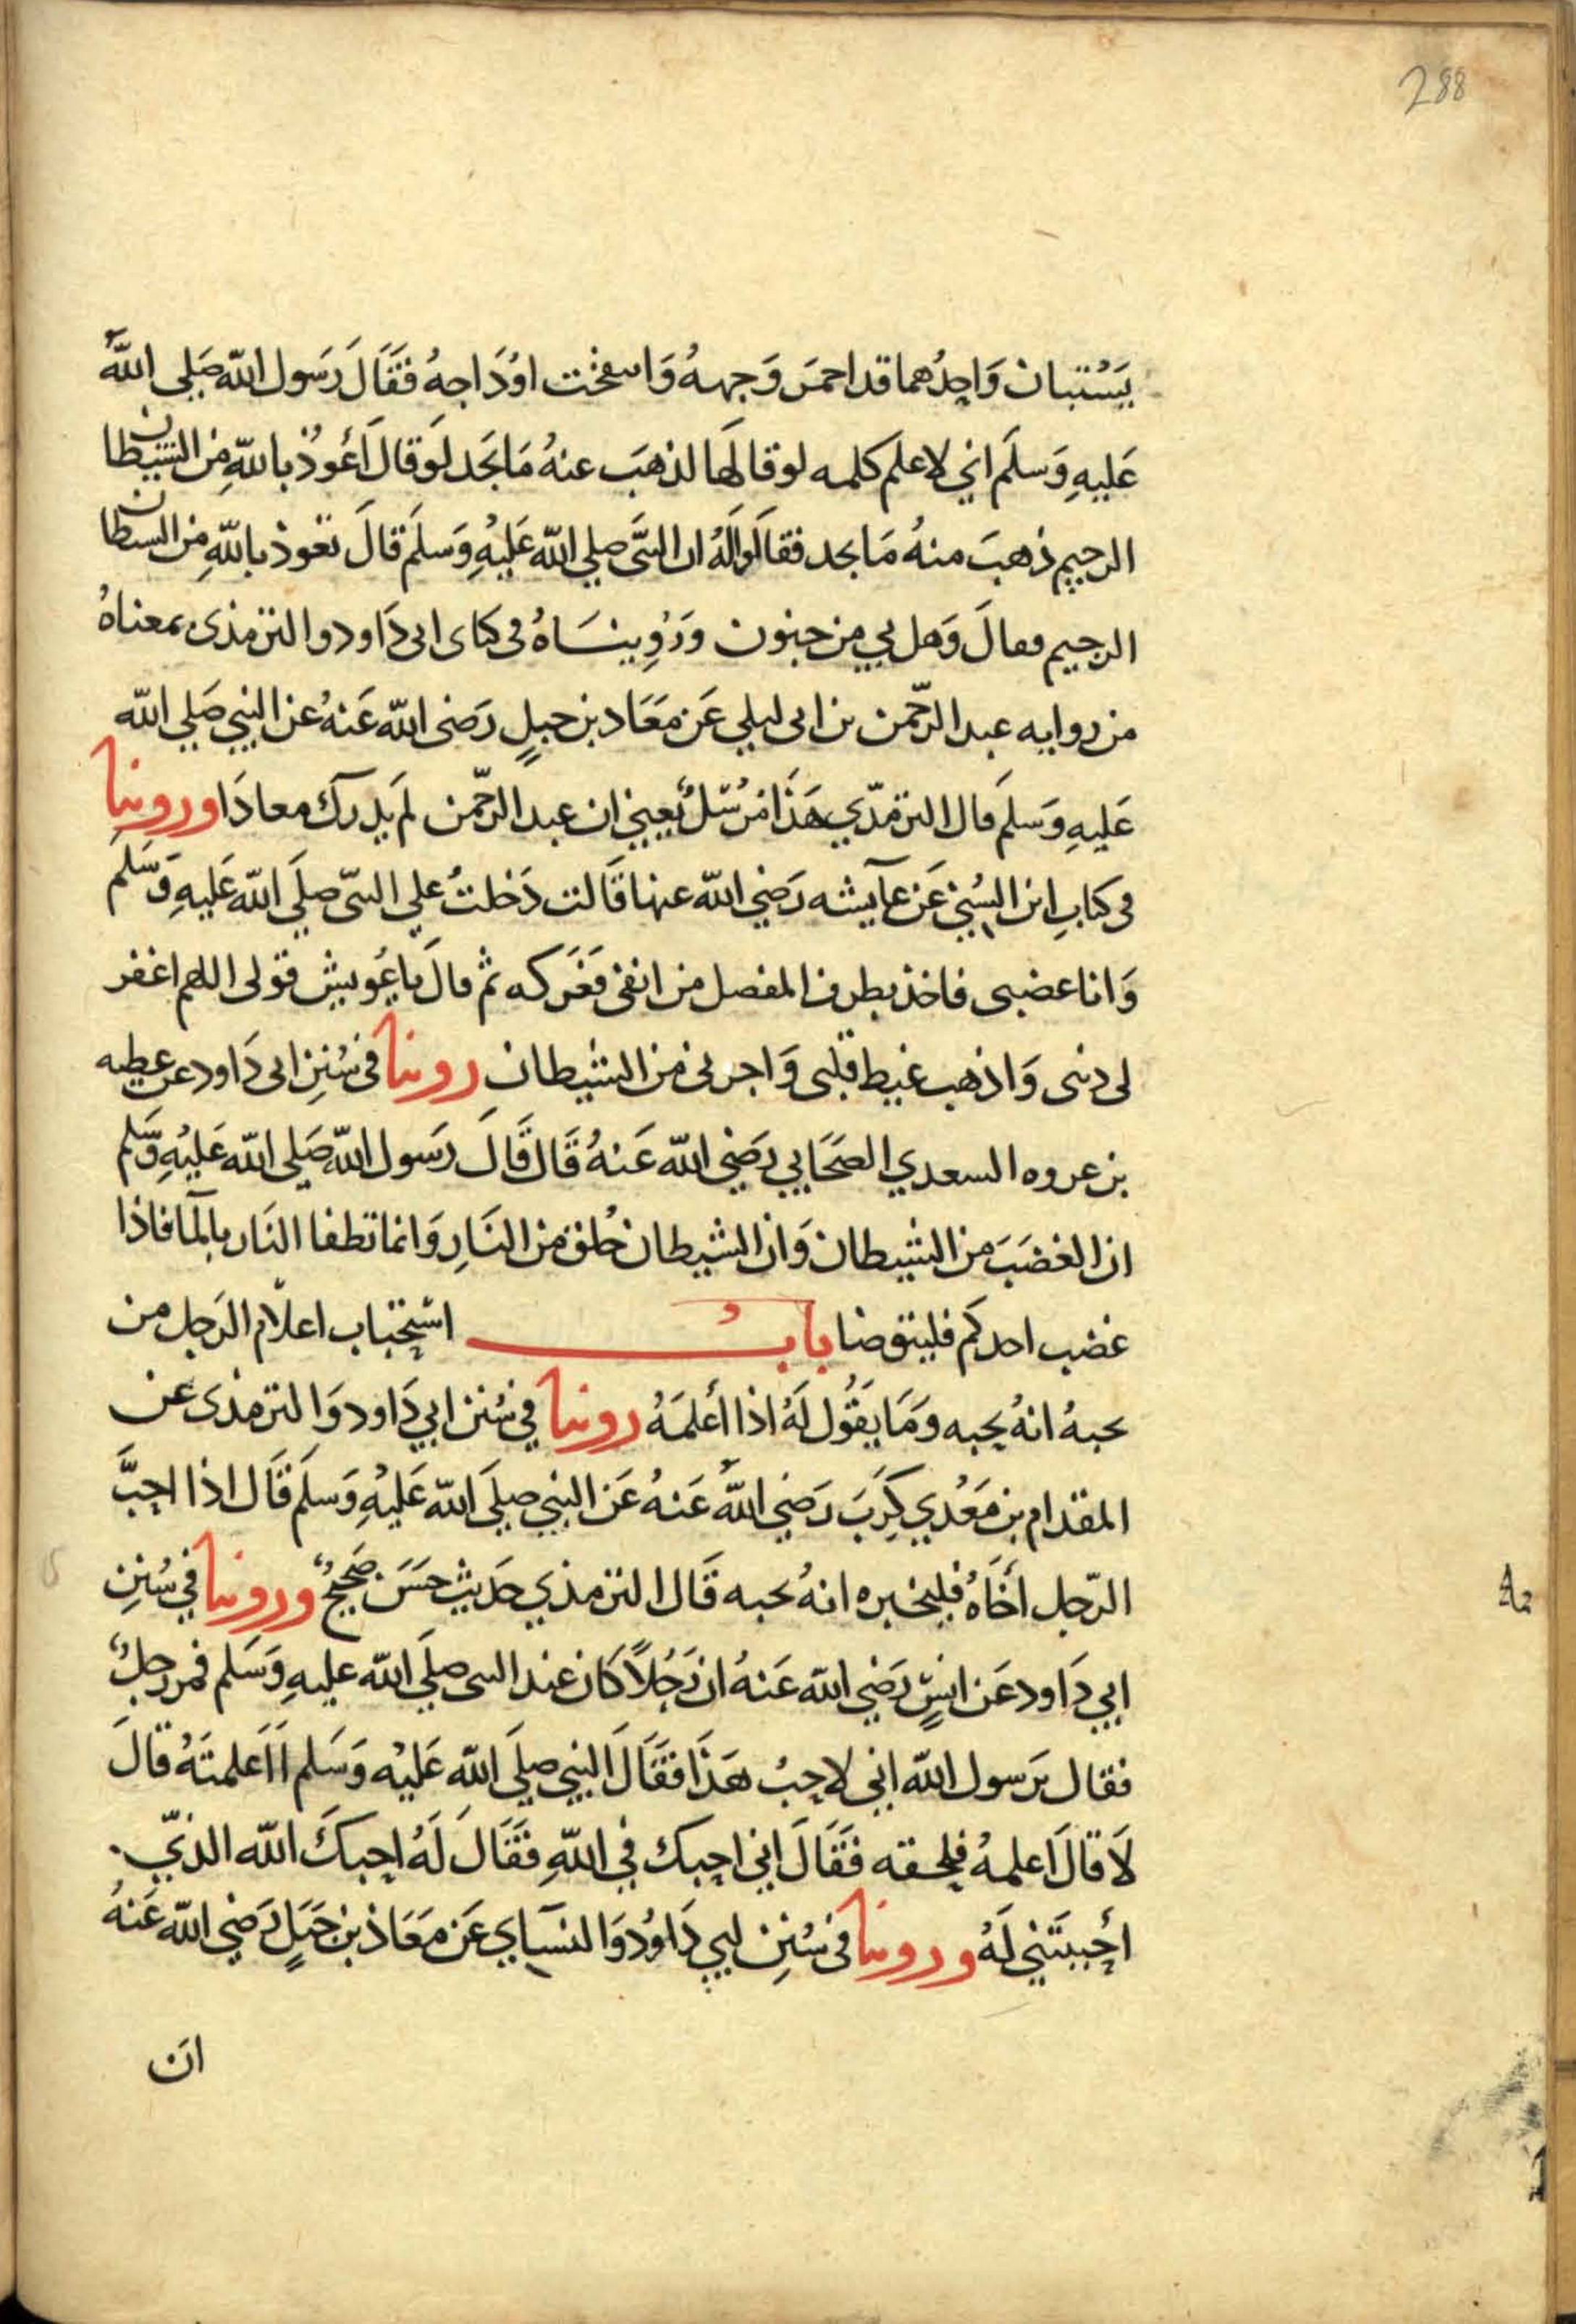 288
يَسْتبان وَاحِدُهما قد احمرَ وَجههُ وَاسفخت اوْدَاجهُ فَقَالَ رَسَول الله صَلي اللهُ
عَليهِ وَسلَم اني لاعلم كلمه لوقالَها لذهبَ عنهُ مَا يَجَد لَو قالَ أعُوذ بالله مِن الشيطان
الرجيم ذهبَ منهُ مَا يجد فقالَوا لَهُ ان النبيَ صلي الله عَليْهِ وَسلَم قالَ تعوذ بالله مِن الشيطان
الرجيم فقالَ وَهل بي من جنون وَرُوِينَاهُ في كتابي ابي دَاود والترمذي بمعناهُ
من روايه عبد الرحّمن بن ابي ليلي عَن مَعَاد بن جبلٍ رَضي الله عَنهُ عن النبي صَلي الله
عَليهِ وَسَلمَ قال الترمذّي هَذَا مُرسَلٌ يعني ان عبد الرحّمن لم يَدرك معاذَا وروينا
في كتابِ ابن السُني عَن عآيشه رَضي الله عنها قَالت دَخلتُ علي النبيّ صلَي الله عَليهِ وَسَلمَ
وَانا غضبي فاخذ بطرف المفصل من انفي فَعَركه ثم قالَ يا عُويش قولي اللهم اغفر
لي ذنبي وَاذهب غيظ قلبي وَاجرني من الشيطان روينا في سُننِ ابي دَاود عن عطيه
بن عروه السعدي الصَحَابي رَضي الله عَنهُ قَالَ قَالَ رَسول الله صَلي الله عَليْهِ وَسَلم
ان الغضبَ من الشيطان وَان الشيطان خُلق من النَارِ وَانما تطفا النَار بالمآ فاذا
غضب احدكم فليتوضا بابُ استحباب اعلام الرَجل من
يحبهُ انهُ يحبه وَمَا يقَوُل لَهُ اذا أعلمَهُ روينا في سُنن ابي دَاود وَالترمذي عن
المقدام بن مَعْدي كِرَبَ رَضي اللهُ عَنهُ عَن النبي صلَي الله عَليْهِ وَسَلَم قَال اذا احبَّ
الرّجل أخَاهُ فليخبره انهُ يحبه قَال الترمذي حدَيث حسَن صَحيحٌ وروينا في سُننِ
ابي دَاود عَن انسٍ رَضي الله عَنهُ ان رَجُلاً كَان عند النبي صلَي الله عليهِ وَسَلم فمر رجلٌ
فقال يَرسول الله اني لاحِبُ هَذَا فقَالَ النبي صلَي الله عَليْه وَسَلم أأَعلمتَهُ قالَ
لَا قالَ اعلمهُ فلحقه فَقَالَ اني احبك في اللهِ فقَالَ لَهُ احبكَ الله الذيّ
أحَببتَني لَهُ وروينا في سُننِ ابي دَاوُد وَالنسَاي عَن مَعَاذ بن جَبَلٍ رَضي الله عَنهُ
ان